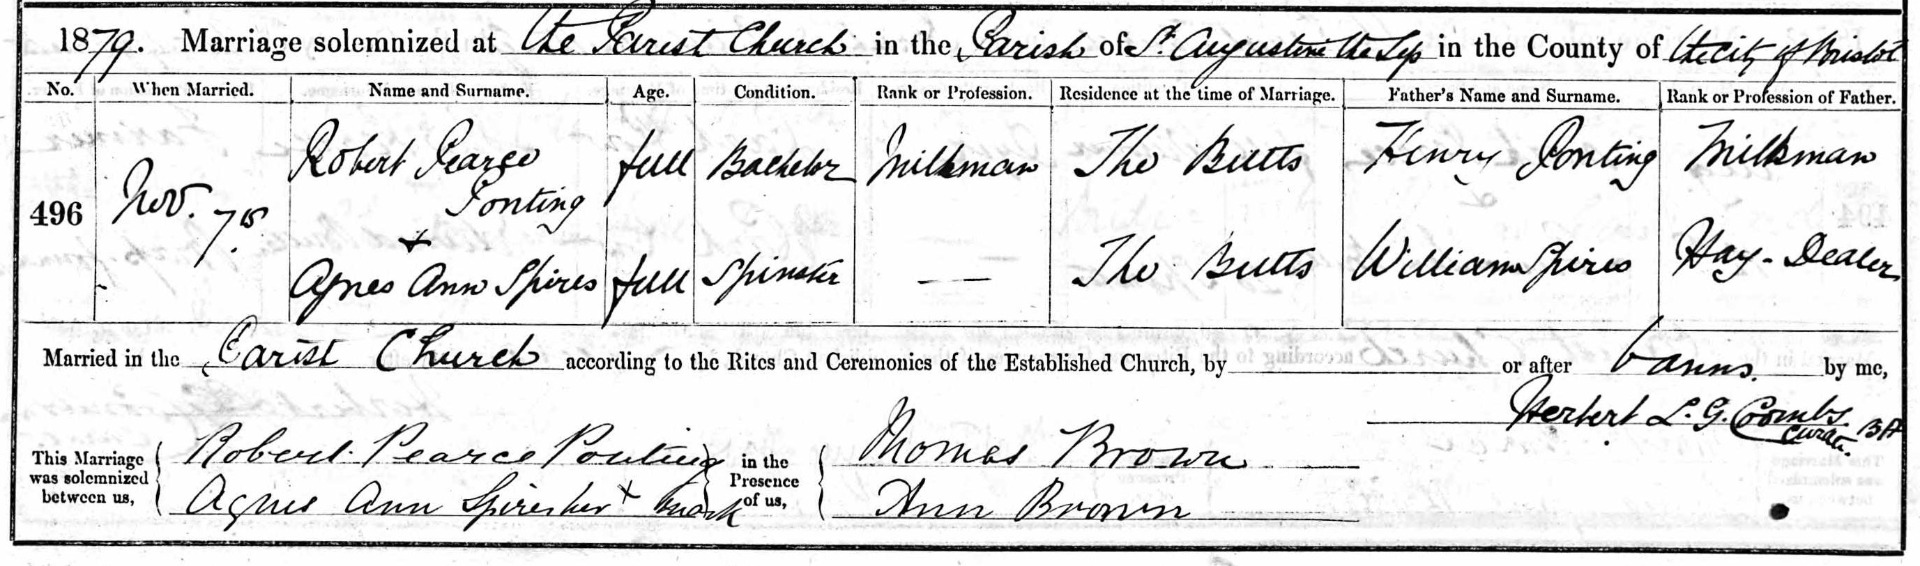 1879. Marriage solemnized at the Parish Church in the Parish of St. Augustine the Less in the County of the City of Bristol
No. When Married. Name and Surname. Age. Condition. Rank or Profession. Residence at the time of Marriage. Father's Name and Surname. Rank or Profession of Father.
Robert Pearce full Bachelor Milkman The Butts Henry Ponting Milkman
496 Nov. 7th. Ponting
+
Agnes Ann Spires full Spinster — The Butts William Spires Hay-Dealer
Married in the Parish Church according to the Rites and Ceremonies of the Established Church, by or after banns. by me,
Herbert L. G. Coombs B A
Curate.
This Marriage was solemnized between us, Robert Pearce Ponting in the Presence of us, Thomas Brown
Agnes Ann Spires her x mark Ann Brown